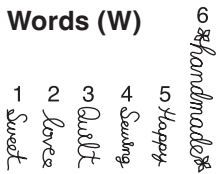 Words (W)
1 Sweet
2 loves
3 Quilt
4 Sewing
5 Happy
6 *handmade*